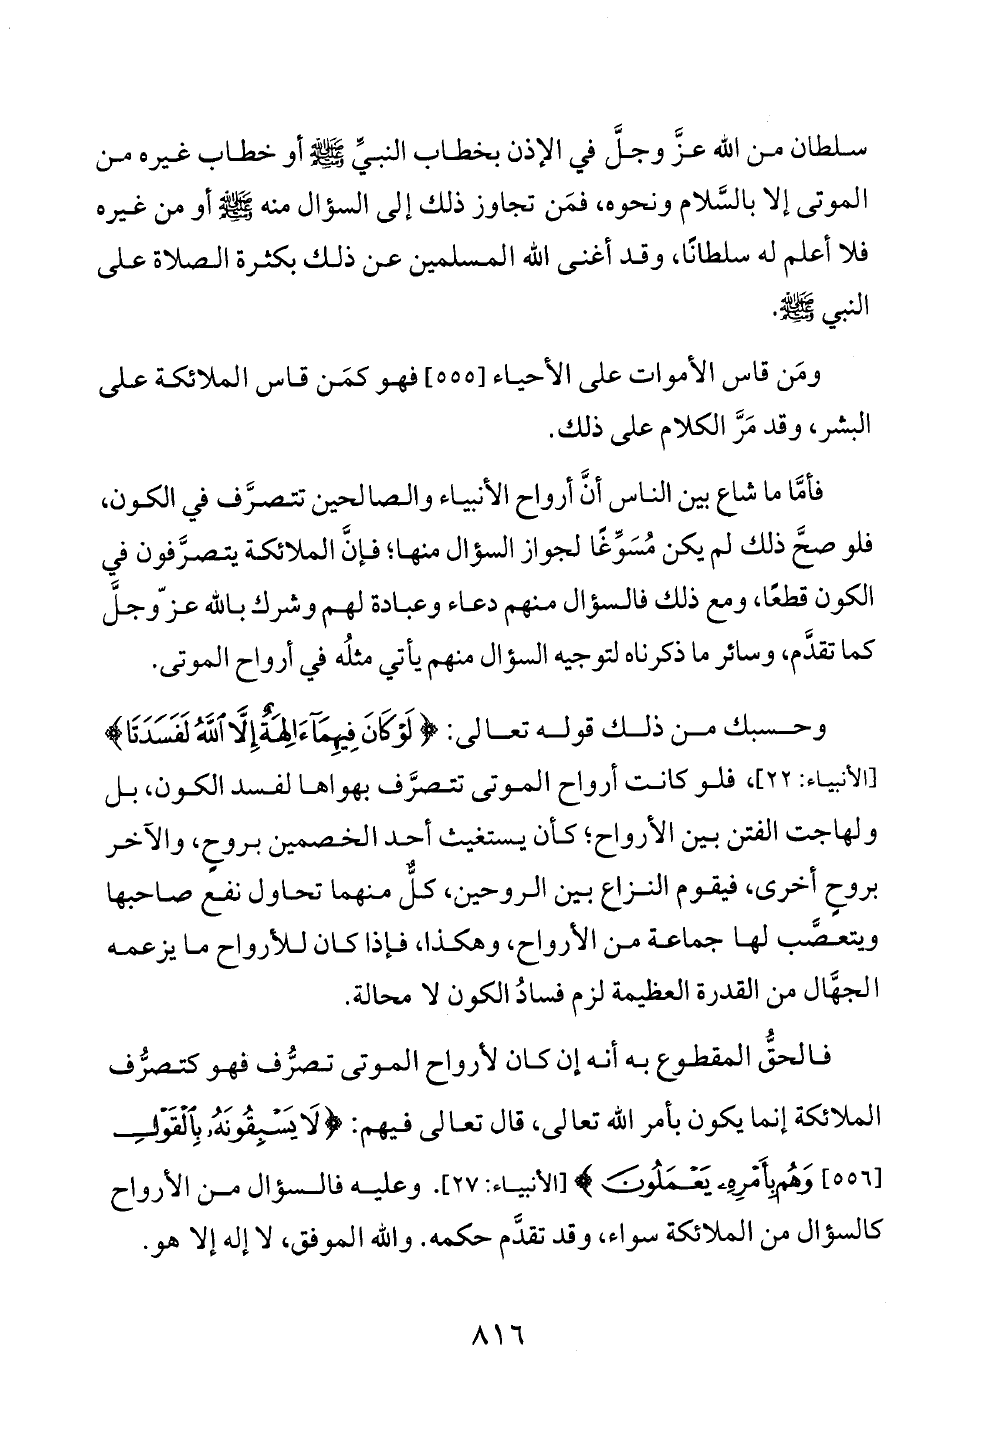 سلطان من الله عزَّ وجلَّ في الإذن بخطاب النبيِّ ﷺ أو خطاب غيره من
الموتى إلا بالسَّلام ونحوه، فمَن تجاوز ذلك إلى السؤال منه ﷺ أو من غيره
فلا أعلم له سلطانًا، وقد أغنى الله المسلمين عن ذلك بكثرة الصلاة على
النبي ﷺ.
ومَن قاس الأموات على الأحياء [٥٥٥] فهو كمَن قاس الملائكة على
البشر، وقد مَرَّ الكلام على ذلك.
فأمَّا ما شاع بين الناس أنَّ أرواح الأنبياء والصالحين تتصرَّف في الكون،
فلو صحَّ ذلك لم يكن مُسَوِّغًا لجواز السؤال منها؛ فإنَّ الملائكة يتصرَّفون في
الكون قطعًا، ومع ذلك فالسؤال منهم دعاء وعبادة لهم وشرك بالله عزّ وجلَّ
كما تقدَّم، وسائر ما ذكرناه لتوجيه السؤال منهم يأتي مثلُه في أرواح الموتى.
وحسبك من ذلك قوله تعالى: ﴿لَوْ كَانَ فِيهِمَآ ءَالِهَةٌ إِلَّا ٱللَّهُ لَفَسَدَتَا﴾
[الأنبياء: ٢٢]، فلو كانت أرواح الموتى تتصرَّف بهواها لفسد الكون، بل
ولهاجت الفتن بين الأرواح؛ كأن يستغيث أحد الخصمين بروحٍ، والآخر
بروحٍ أخرى، فيقوم النزاع بين الروحين، كلٌّ منهما تحاول نفع صاحبها
ويتعصَّب لها جماعة من الأرواح، وهكذا، فإذا كان للأرواح ما يزعمه
الجهَّال من القدرة العظيمة لزم فسادُ الكون لا محالة.
فالحقُّ المقطوع به أنه إن كان لأرواح الموتى تصرُّف فهو كتصرُّف
الملائكة إنما يكون بأمر الله تعالى، قال تعالى فيهم: ﴿لَا يَسْبِقُونَهُۥ بِٱلْقَوْلِ
[٥٥٦] وَهُم بِأَمْرِهِۦ يَعْمَلُونَ﴾ [الأنبياء: ٢٧]. وعليه فالسؤال من الأرواح
كالسؤال من الملائكة سواء، وقد تقدَّم حكمه. والله الموفق، لا إله إلا هو.
٨١٦